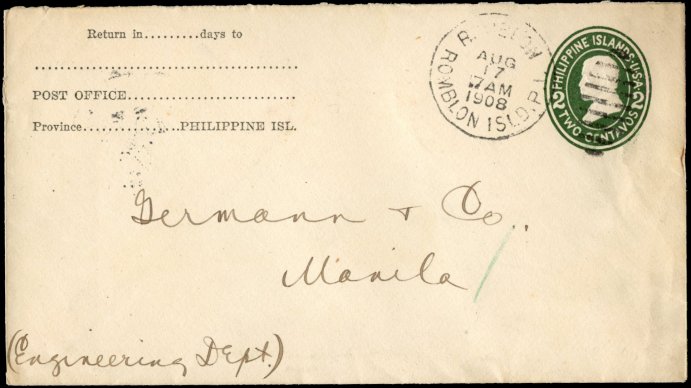 Return in.........days to
POST OFFICE
Province...............PHILIPPINE ISL.
ROMBLON
AUG
17
7AM
1908
ROMBLON ISLD. P.I.
PHILIPPINE ISLANDS·U·S·A
2 2
TWO CENTAVOS
Germann & Co.,
Manila
(Engineering Dept.)